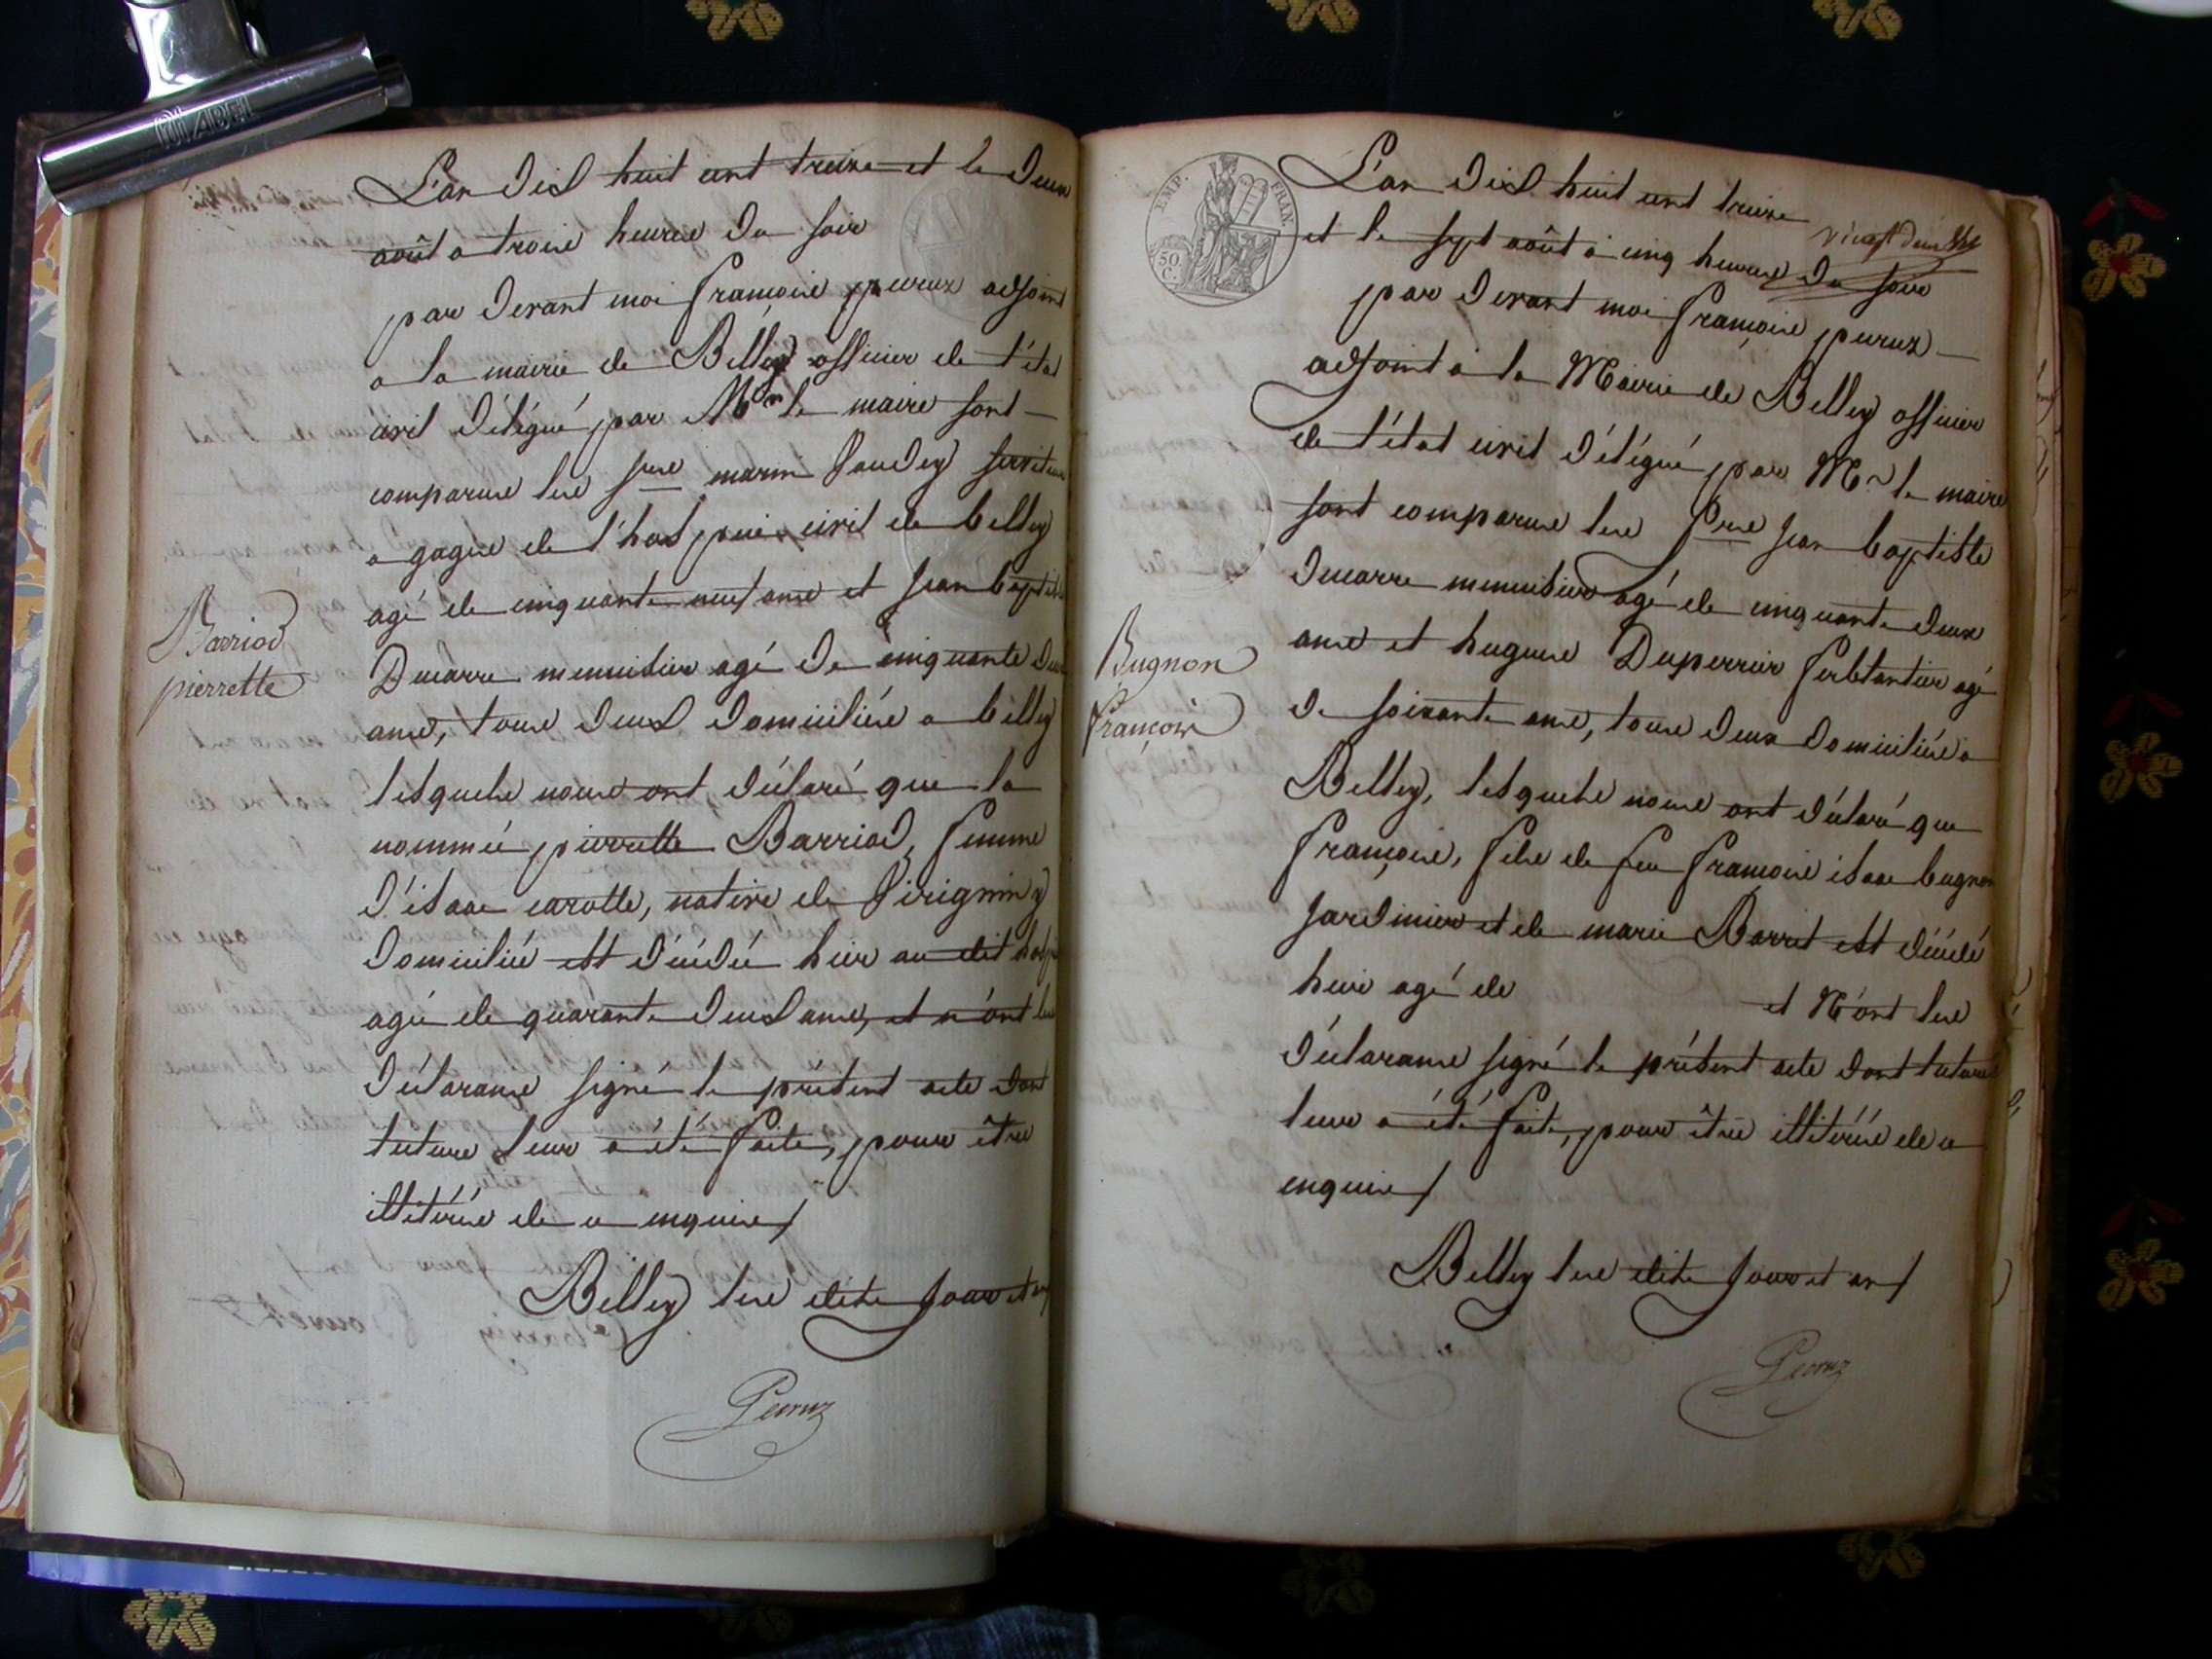 L'an dix huit cent treize et le deux
août a trois heures du soir
par devant moi françois peruz adjoint
a la mairie de Belley officier de l'état
civil délégué par Mr le maire sont
comparus les srs marin serviteur
a gages de l'hospice civil de belley
agé de cinquante neuf ans et jean baptiste
Ducarre menuisier agé de cinquante deux
ans, tous deux domiciliés a belley
lesquels nous ont déclaré que la
nommée pierrette Barriod, femme
d'isaac carotte, native de
domiciliée est décédée hier au dit hospice
agée de quarante deux ans, et n'ont les
déclarans signé le présent acte dont
lecture leur a été faite, pour être
illitérés de ce enquis
Belley les dits jour et an
Peruz
Barriod
pierrette
EMP. FRAN.
50 C.
L'an dix huit cent treize
vingt deux
et le sept août à cinq heures du soir
par devant moi françois peruz
adjoint à la Mairie de Belley officier
de l'état civil délégué par Mr le maire
sont comparus les srs jean baptiste
Ducarre menuisier agé de cinquante deux
ans et hugues Duperrier ferblantier agé
de soixante ans, tous deux domiciliés a
Belley, lesquels nous ont déclaré que
françois, fils de feu françois isaac bugnon
jardinier et de marie Barrit est décédé
hier agé de et N'ont les
déclarans signé le présent acte dont lecture
leur a été faite, pour être illitérés de ce
enquis
Belley les dits jour et an
Peruz
Bugnon
françois